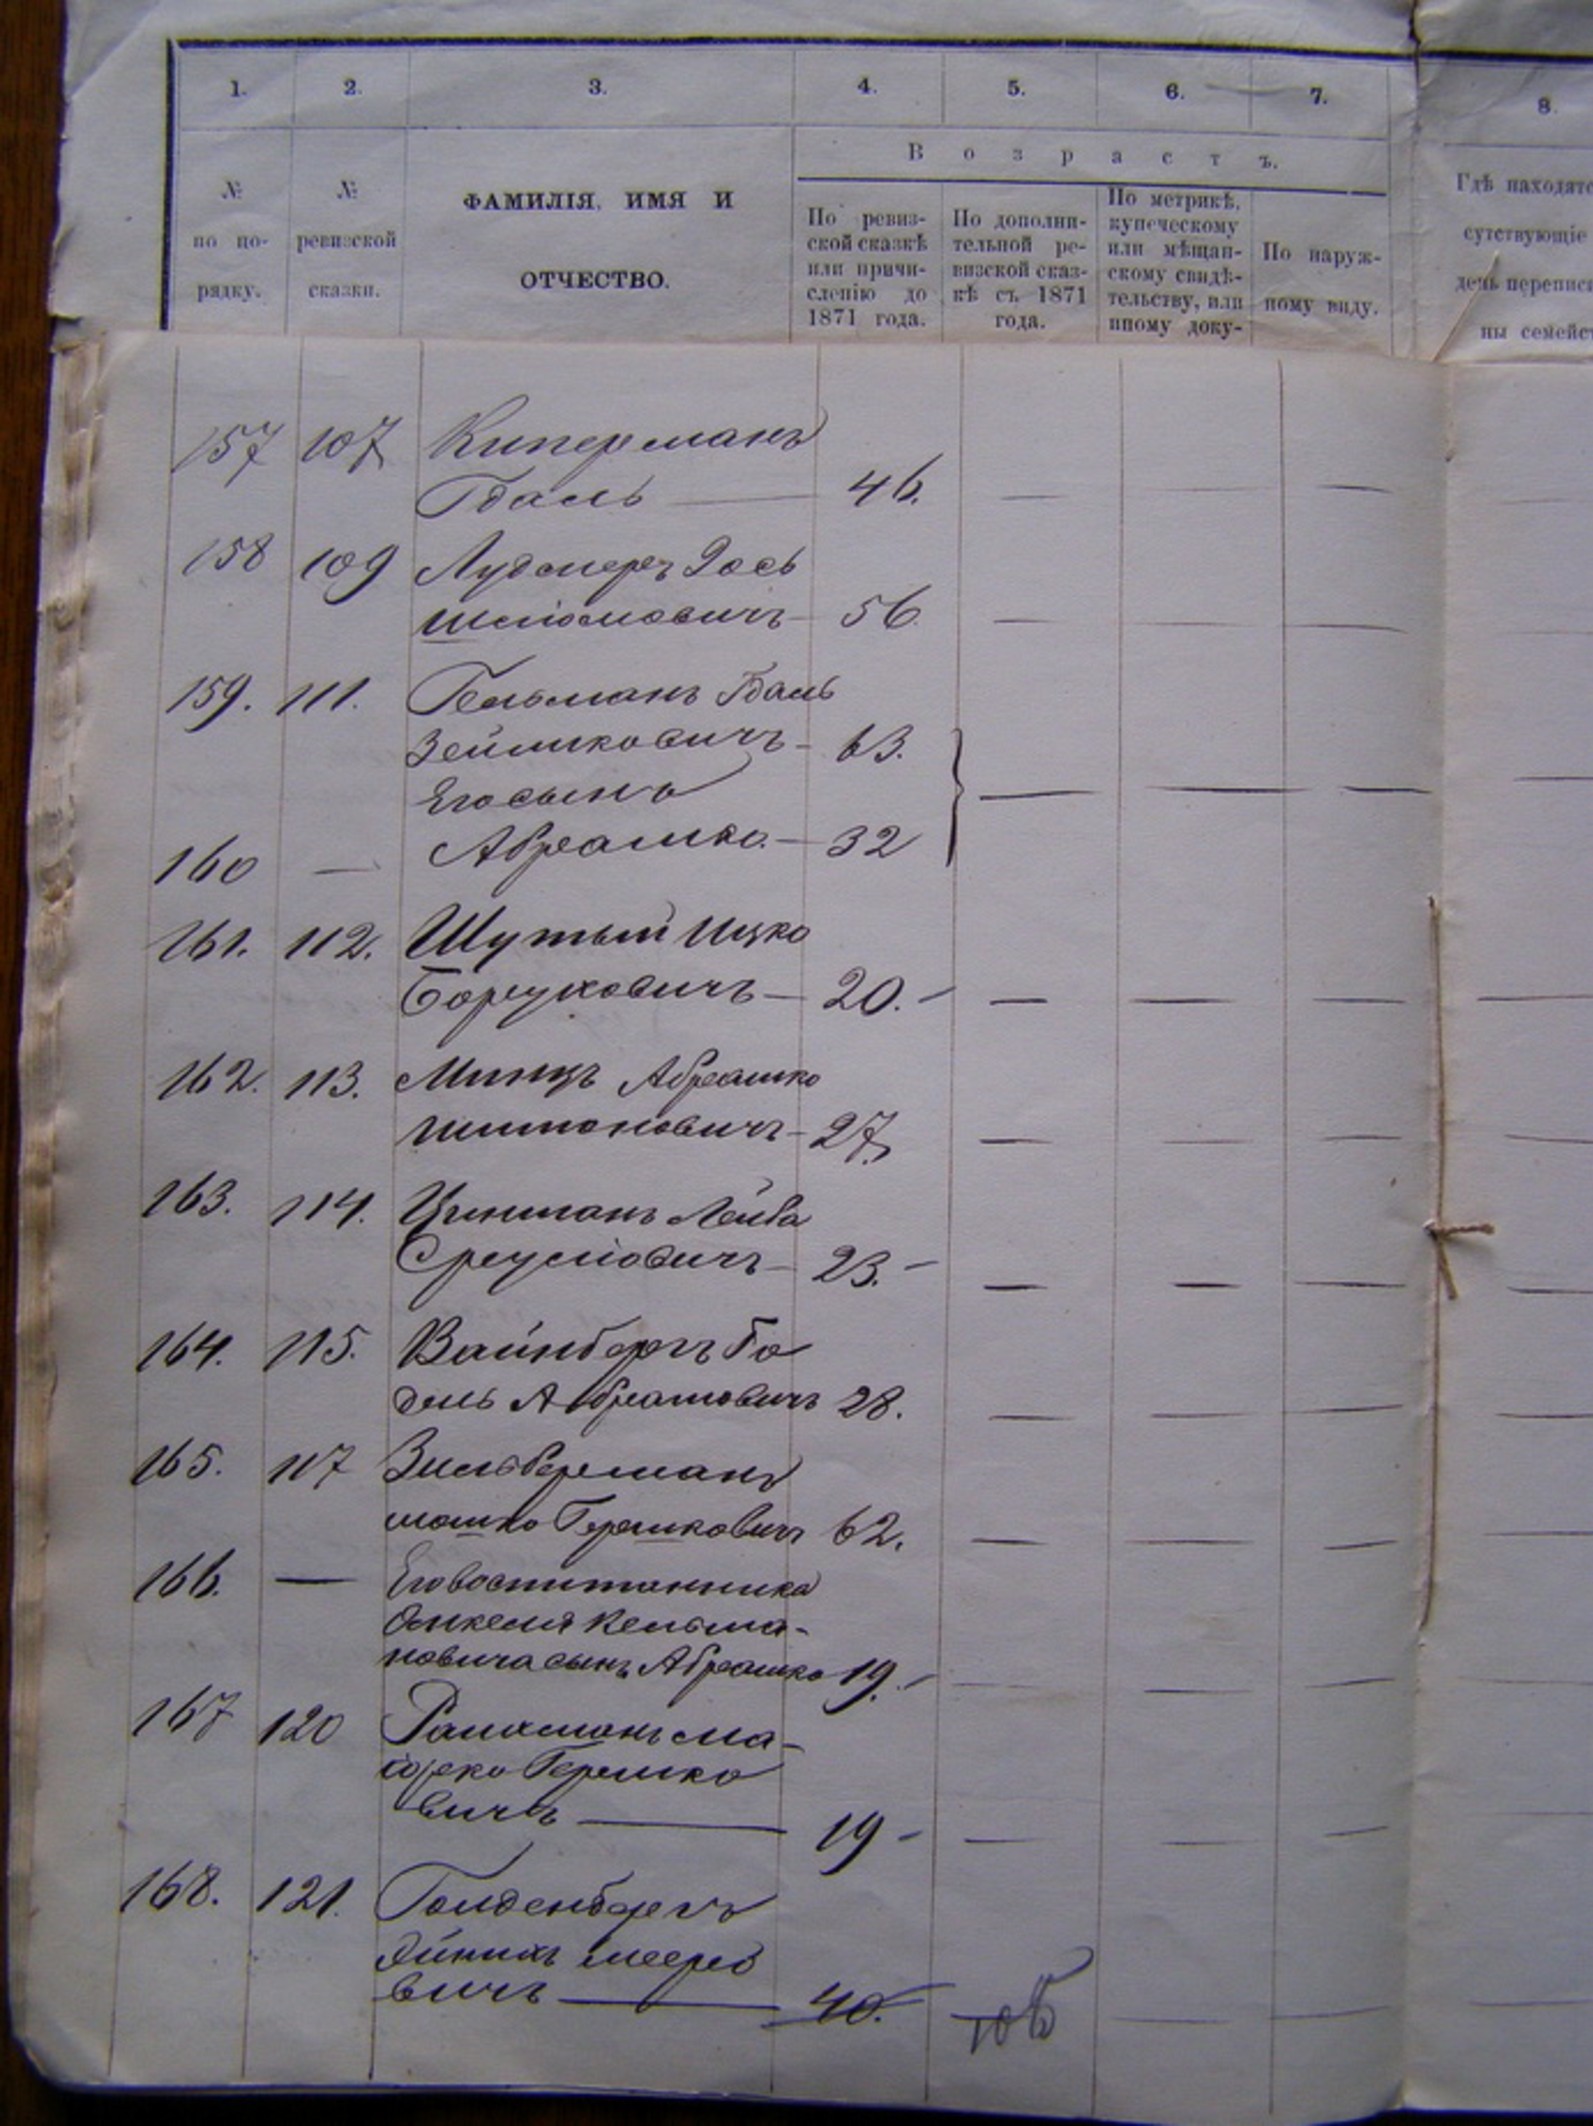 1. 2. 3. 4. 5. 6. 7. 8.
В о з р а с т ъ.
№ по по-рядку.
№ ревизской сказки.
ФАМИЛІЯ, ИМЯ И
ОТЧЕСТВО.
По ревиз-
ской сказкѣ
или причи-
сленію до
1871 года.
По дополни-
тельной ре-
визской сказ-
кѣ съ 1871
года.
По метрикѣ,
купеческому
или мѣщан-
скому свидѣ-
тельству, или
иному доку-
По наруж-
ному виду.
Гдѣ находятс
сутствующіе
день переписи
ны семейст
157 107 Киперманъ
Гдаль — 46. — — —
158 109 Лудмеръ Іось
Шліомовичъ — 56 — — —
159. 111. Гельманъ Гдаль
Зейликовичъ — 63.
Его сынъ — — —
160 — Абрамко — 32
161. 112. Шутый Ицко
Боруховичъ — 20. — — — —
162. 113. Минцъ Абрамко
Шимоновичъ — 27. — — —
163. 114. Лейба
Сруліовичъ — 23. — — — —
164. 115. Вайнбергъ Го
дель Абрамовичъ 28. — — —
165. 117 Зильберманъ
Мошко Гершковичъ 62. — — —
166. — Его воспитанника
Янкеля Кельма-
новича сынъ Абрамко 19. — — — —
167 120
Гершко
вичъ — 19 — — — —
168. 121. Голденбергъ
Мееро
вичъ — 40. — —